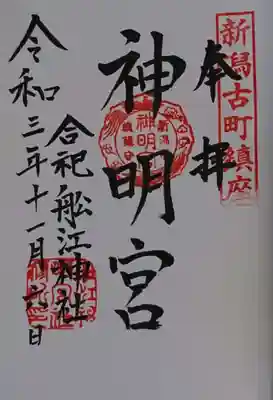 新潟古町鎮座
奉拝
神明宮
神明
合祀 舩江神社
令和三年十一月六日